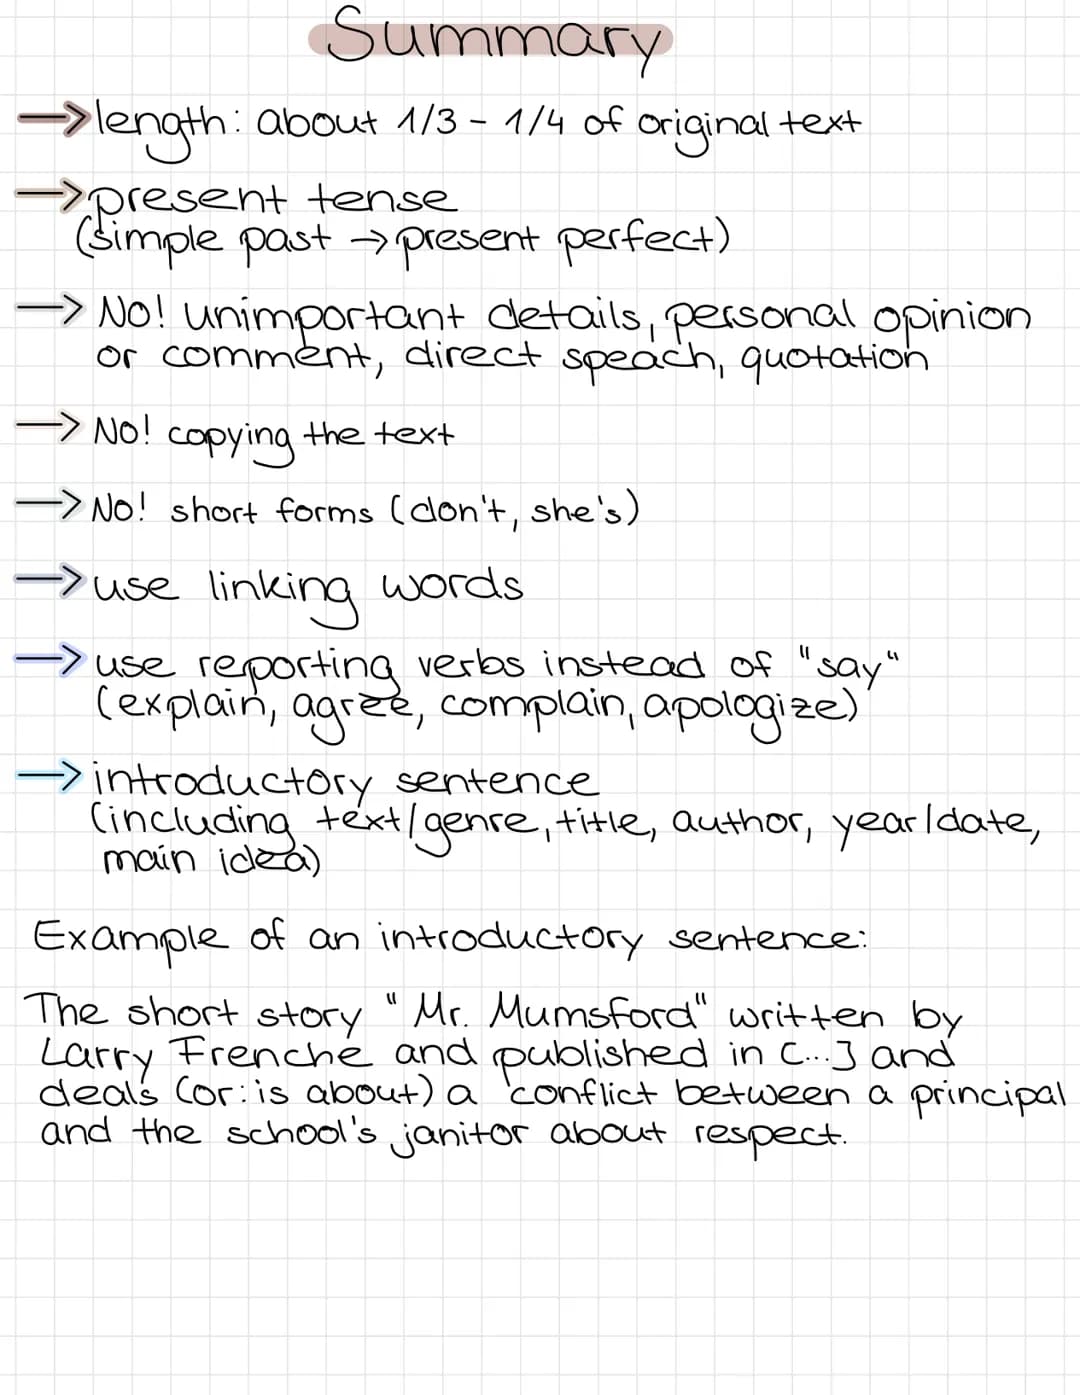 Summary
→ length: about 1/3 - 1/4 of original text
→ present tense
(simple past → present perfect)
→ No! unimportant details, personal opinion
or comment, direct speach, quotation
→ No! copying the text
→ No! short forms (don't, she's)
→ use linking words
→ use reporting verbs instead of "say"
(explain, agree, complain, apologize)
→ introductory sentence
(including text/genre, title, author, year/date,
main idea)
Example of an introductory sentence:
The short story "Mr. Mumsford" written by
Larry Frenche and published in [...] and
deals (or: is about) a conflict between a principal
and the school's janitor about respect.